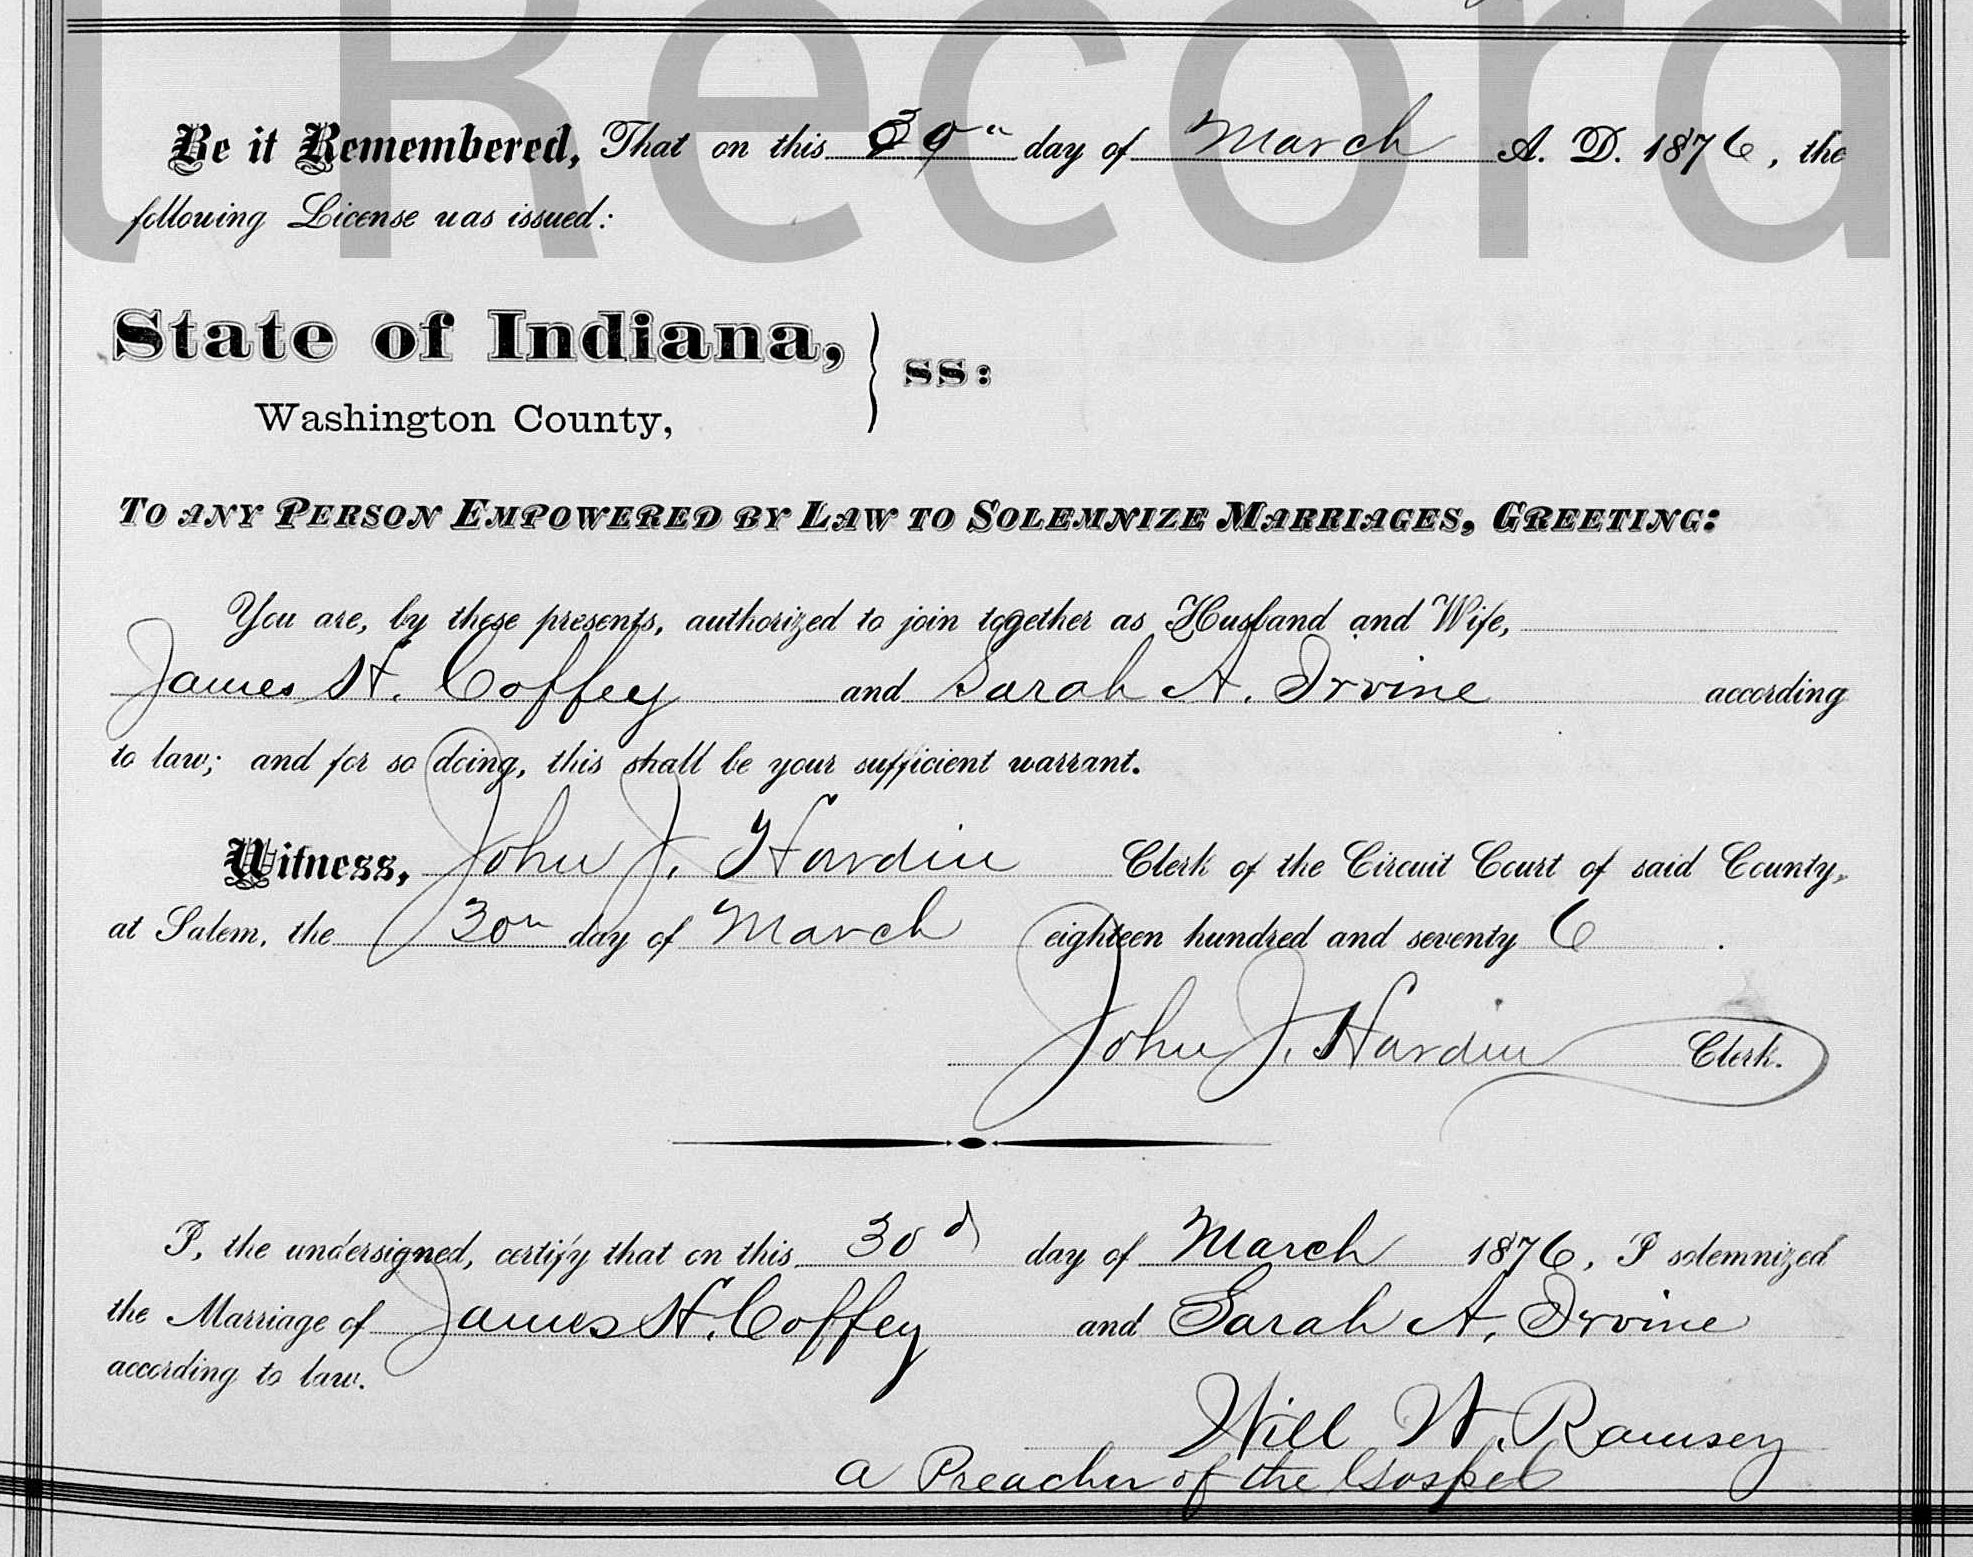 t Record
Be it Remembered, That on this 30" day of March A. D. 1876, the
following License was issued:
State of Indiana,
ss:
Washington County,
TO ANY PERSON EMPOWERED BY LAW TO SOLEMNIZE MARRIAGES, GREETING:
You are, by these presents, authorized to join together as Husband and Wife,
James H. Coffey and Sarah A. Irvine according
to law; and for so doing, this shall be your sufficient warrant.
Witness, John J. Hardin Clerk of the Circuit Court of said County,
at Salem, the 30" day of March eighteen hundred and seventy 6.
John J. Hardin Clerk.
I, the undersigned, certify that on this 30d day of March 1876, I solemnized
the Marriage of James H. Coffey and Sarah A. Irvine
according to law.
Will H. Ramsey
a Preacher of the Gospel